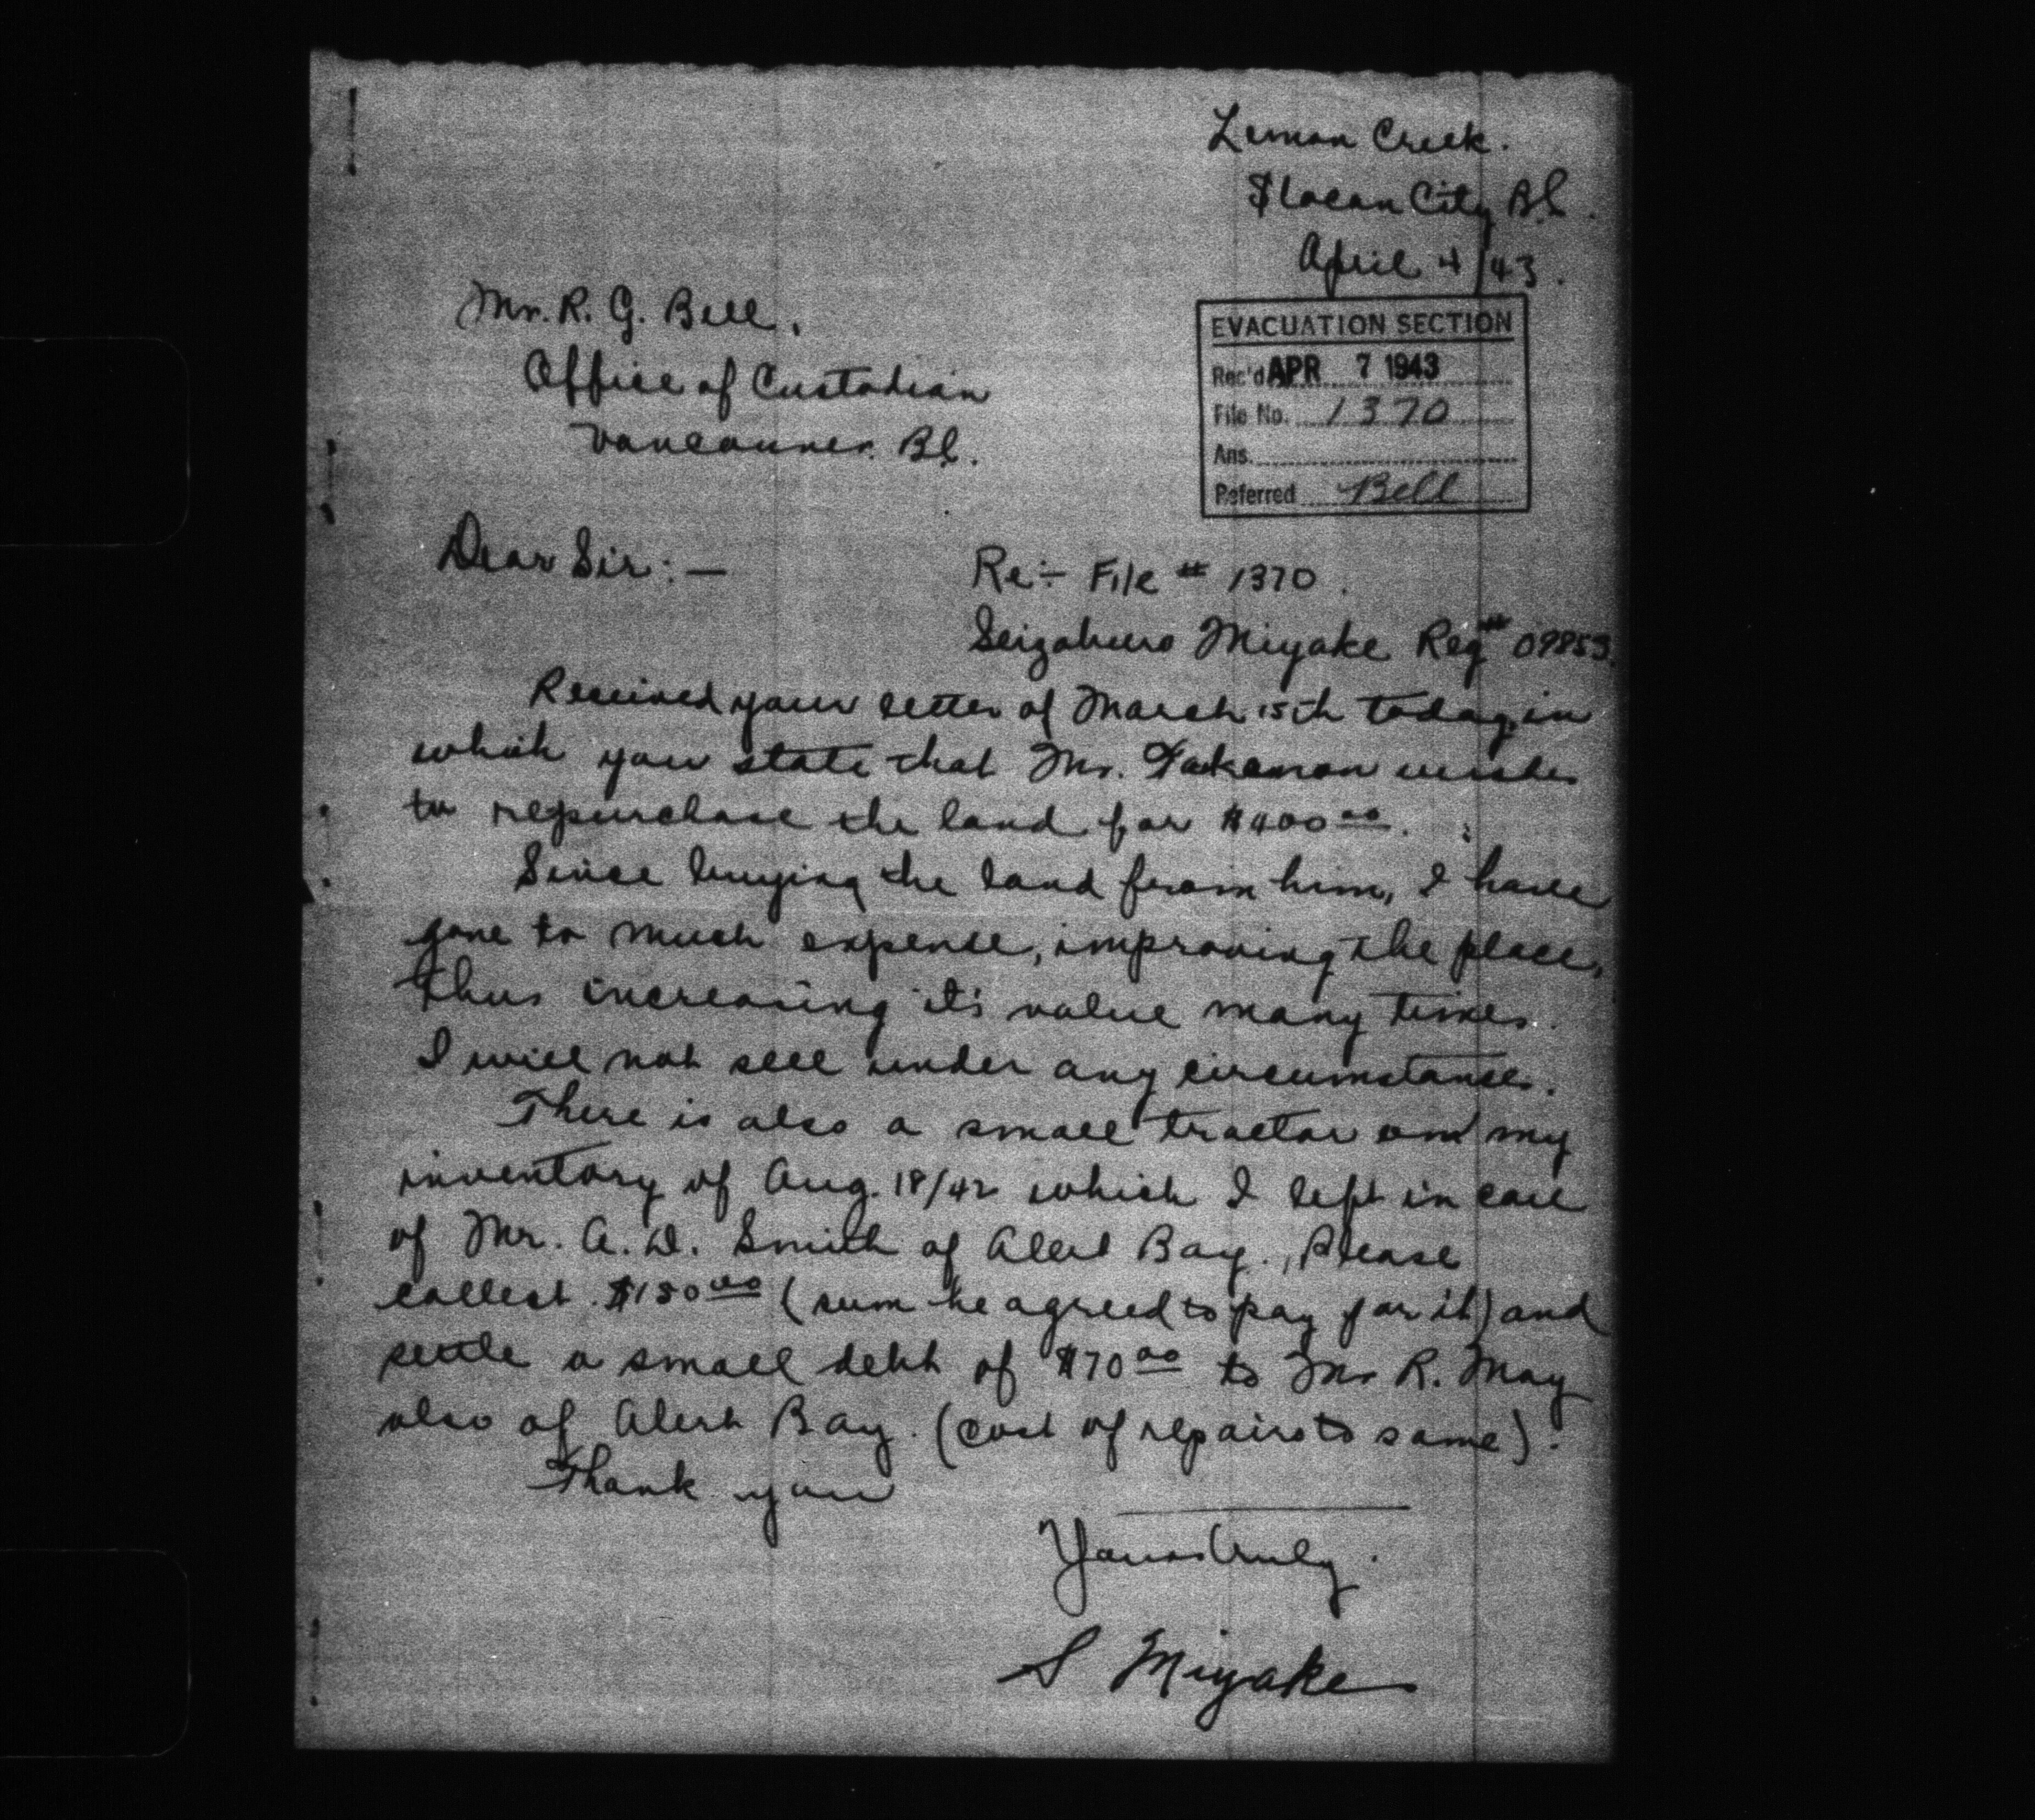 Lemon Creek.
Slocan City B.C.
April 4/43.
Mr. R. G. Bell,
Office of Custodian
Vancouver. B.C.
EVACUATION SECTION
Rec'd APR 7 1943
File No. 1370
Ans.
Referred Bell
Dear Sir:—
Re:- File # 1370.
Seizaburo Miyake Reg # 09853.
Received your letter of March 15th today, in
which you state that Mr. wishes
to repurchase the land for $400.00.
Since buying the land from him, I have
gone to much expense, improving the place,
thus increasing it's value many times.
I will not sell under any circumstances.
There is also a small tractor on my
inventory of Aug. 18/42 which I left in care
of Mr. A. D. Smith of Alert Bay. Please
collect $150.00 (sum he agreed to pay for it) and
settle a small debt of $70.00 to Mr R. May
also of Alert Bay. (cost of repairs to same).
Thank you
Yours truly.
S Miyake